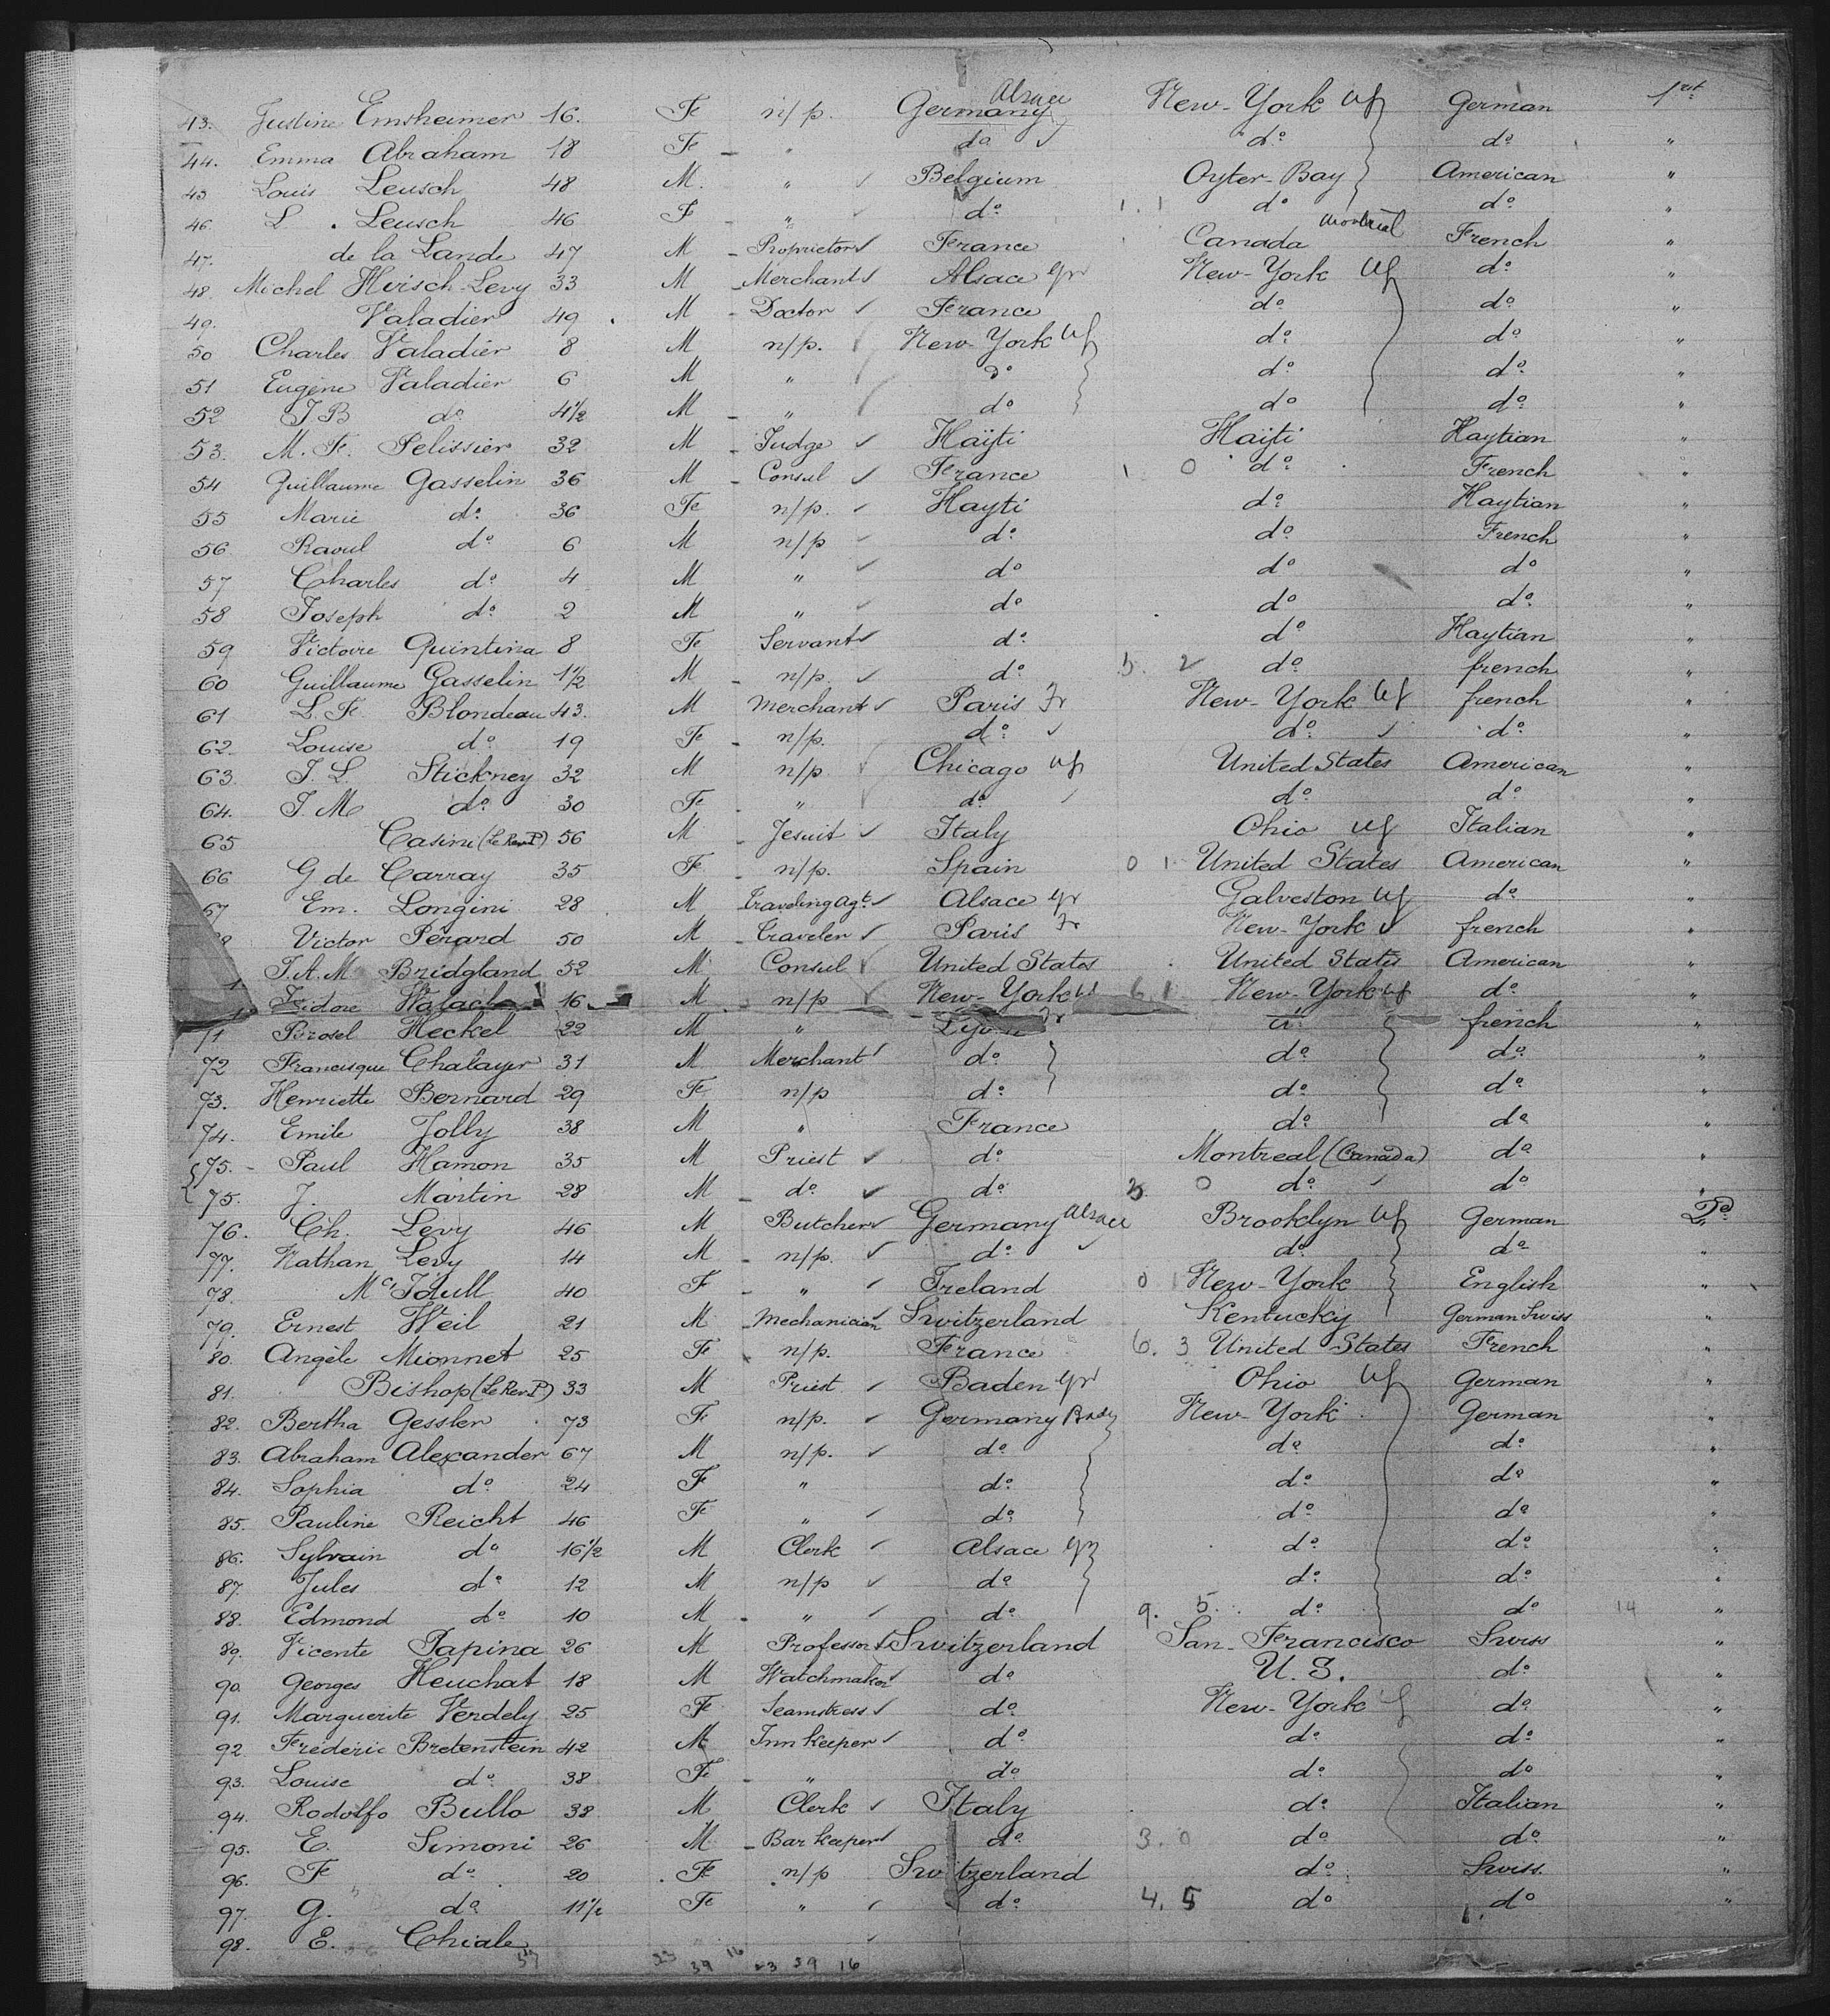 43. Justine Emsheimer 16. Fe n/p. Germany Alsace New-York Uf German 1rst
44. Emma Abraham 18 Fe " do do do "
45 Louis Leusch 48 M. " Belgium Oyter-Bay American "
46. L. Leusch 46 F " do 1. 1 do do "
47. de la Lande 47 M Proprietor France Canada Montreal French "
48. Michel Hirsch-Levy 33 M Merchant Alsace gr New-York Uf do "
49. Valadier 49 M Doctor France do do "
50 Charles Valadier 8 M n/p. New-York Uf do do "
51 Eugène Valadier 6 M " do do do "
52 J.B do 4 1/2 M " do do do "
53. M. F. Pelissier 32 M Judge Haïti Haïti Haytian "
54 Guillaume Gasselin 36 M Consul France 1 0 do French "
55 Marie do 36 Fe n/p. Hayti do Haytian "
56 Raoul do 6 M n/p do do French "
57 Charles do 4 M " do do do "
58 Joseph do 2 M " do do do "
59 Victoire Quintina 8 Fe Servant do do Haytian "
60 Guillaume Gasselin 1 1/2 M n/p. do 5. 2 do french "
61 L. F. Blondeau 43. M Merchant Paris Fr New-York Uf french "
62. Louise do 19 Fe n/p. do do do "
63. J. L. Stickney 32 M n/p Chicago Uf United States American "
64. J. M do 30 Fe " do do do "
65 Casini (Le Rev. P) 56 M Jesuit Italy Ohio Uf Italian "
66 G de Carray 35 Fe n/p. Spain 0 1 United States American "
67 Em. Longini 28 M Traveling Agt. Alsace gr Galveston Uf do "
Victor Pérard 50 M Traveler Paris Fr New-York french "
J.A.M Bridgland 52 M Consul United States United States American "
Isidore Walach 16 M n/p New-York Uf 6 1 New-York Uf do "
71 Brosel Heckel 22 M " Lyon Fr do french
72 Francisque Chalayer 31 M Merchant do do do "
73. Henriette Bernard 29 Fe n/p do do do "
74. Emile Jolly 38 M " France do do "
75. Paul Hamon 35 M Priest do Montreal (Canada) do "
75. J. Martin 28 M do do 5. 0 do do "
76. Ch. Levy 46 M Butcher Germany Alsace Brooklyn Uf German 2d
77. Nathan Levy 14 M n/p. do do do "
78. Mc 40 F " Ireland 0 1 New-York English "
79. Ernest Weil 21 M Mechanician Switzerland Kentucky German Swiss "
80. Angèle Mionnet 25 Fe n/p. France 6. 3 United States French "
81. Bishop (Le Rev. P) 33 M Priest Baden gr Ohio Uf German "
82. Bertha Gessler 73 F n/p. Germany New-York German "
83. Abraham Alexander 67 M n/p. do do do "
84. Sophia do 24 F " do do do "
85. Pauline Reicht 46 Fe " do do do "
86. Sylvain do 16 1/2 M Clerk Alsace gr do do "
87. Jules do 12 M n/p do do do "
88. Edmond do 10 M " do 9. 5. do do 14 "
89. Vicente Papina 26 M Professor Switzerland San-Francisco Swiss "
90. Georges Heuchat 18 M Watchmaker do U.S. do "
91. Marguerite Verdely 25 Fe Seamstress do New-York do "
92. Frederic Bretenstein 42 M Inn keeper do do do "
93. Louise do 38 Fe " do do do "
94. Rodolfo Bullo 38 M Clerk Italy do Italian "
95. E. Simoni 26 M Bar keeper do 3. 0 do do "
96. Fe do 20 Fe n/p Switzerland do Swiss. "
97. G. do 11 1/2 Fe " do 4. 5 do do "
98. E. Chiale
23 39 16 23 39 16